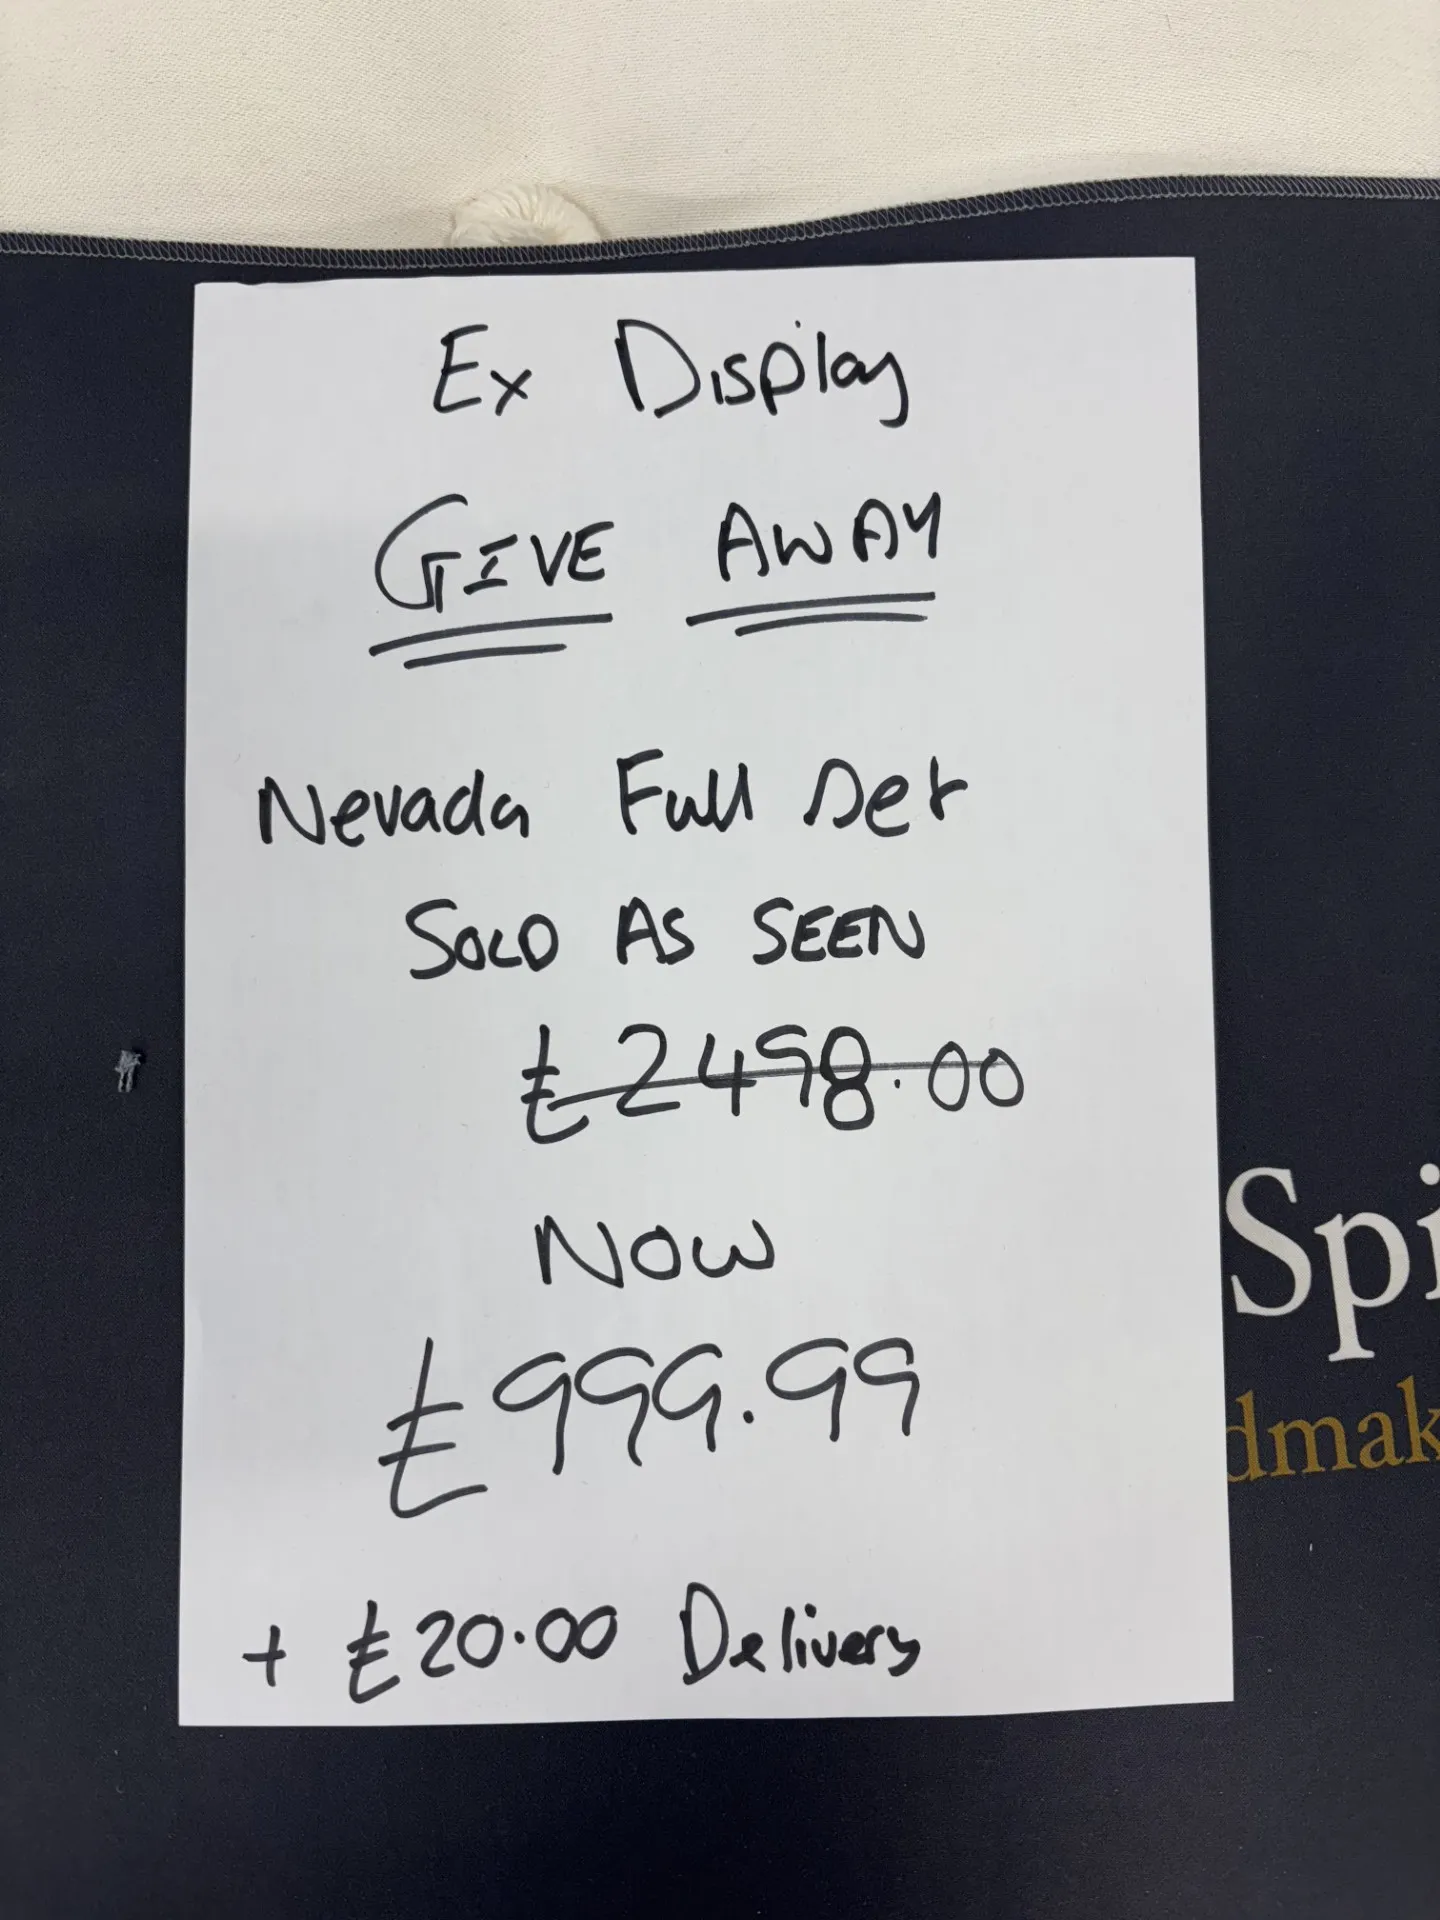 Ex Display
GIVE AWAY
Nevada Full Set
SOLD AS SEEN
£2498.00
NOW
£999.99
+ £20.00 Delivery
Spi
dmak